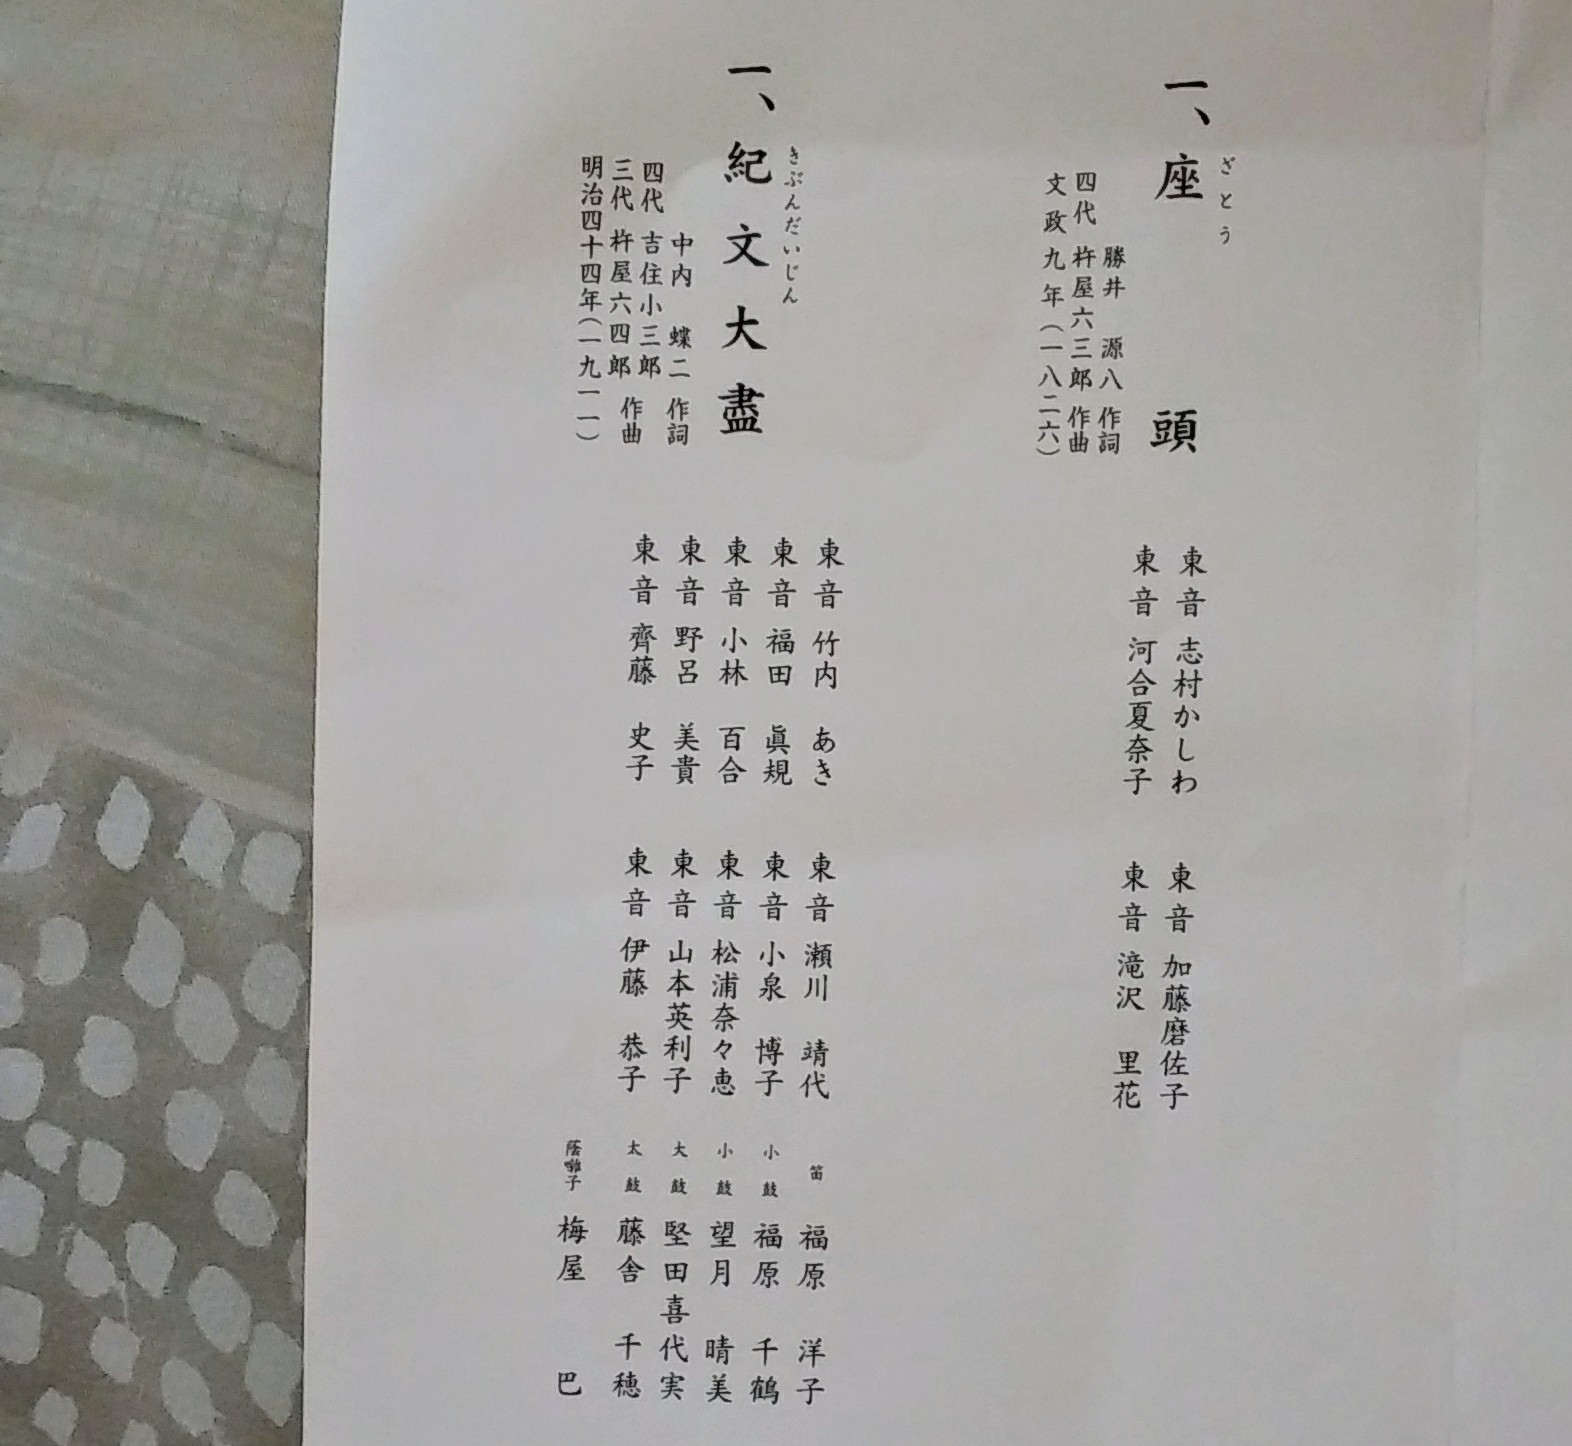 一、座頭
ざとう
勝井 源八 作詞
四代 杵屋六三郎 作曲
文政九年(一八二六)
東音 志村かしわ
東音 河合夏奈子
東音 加藤磨佐子
東音 滝沢 里花
一、紀文大盡
きぶんだいじん
中内 蝶二 作詞
四代 吉住小三郎
三代 杵屋六四郎 作曲
明治四十四年(一九一一)
東音 竹内 あき
東音 福田 眞規
東音 小林 百合
東音 野呂 美貴
東音 齊藤 史子
東音 瀬川 靖代
東音 小泉 博子
東音 松浦奈々恵
東音 山本英利子
東音 伊藤 恭子
笛 福原 洋子
小鼓 福原 千鶴
小鼓 望月 晴美
大鼓 堅田喜代実
太鼓 藤舎 千穂
蔭囃子 梅屋 巴